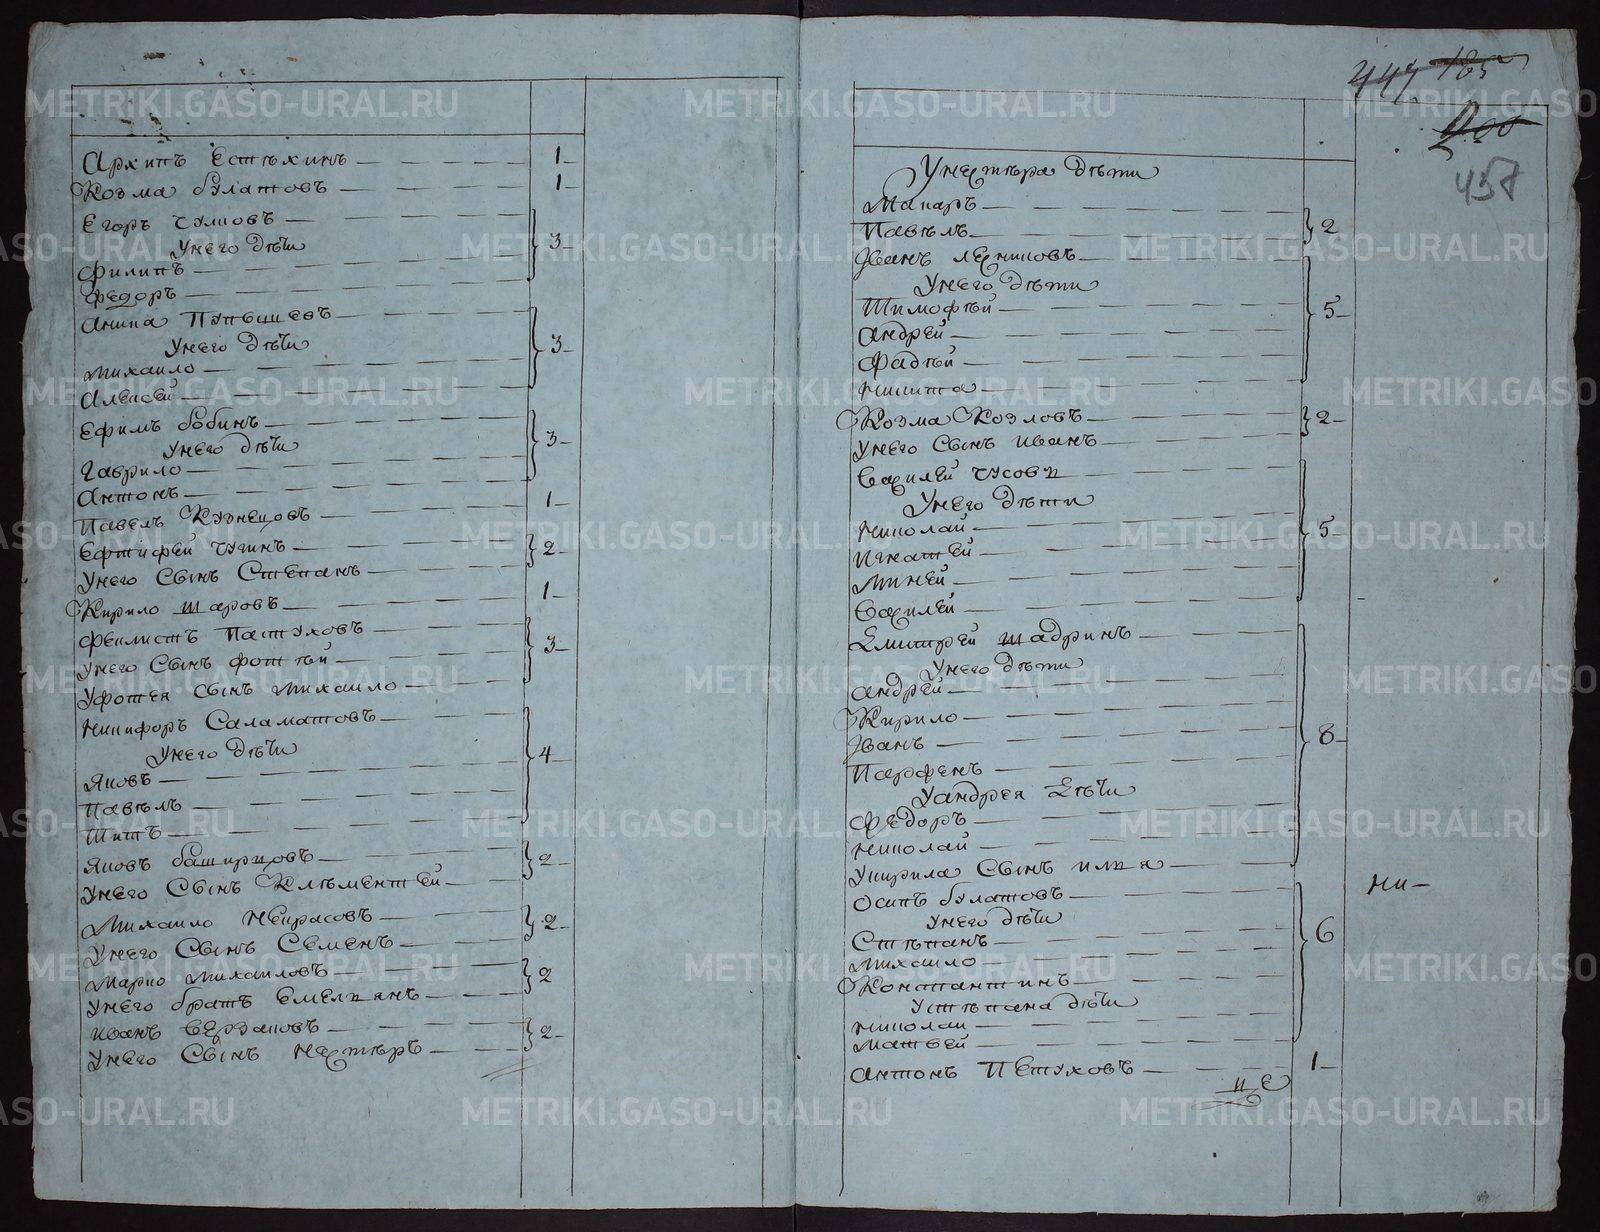 Архипъ Естехинъ 1
Козма булатовъ 1
Егоръ чулковъ
Унего дѣти 3
филипъ
Федоръ
Аника Пупышевъ
Унего дѣти 3
Михаило
Алексей
Ефимъ бобинъ
Унего дѣти 3
Гаврило
Антонъ
Павелъ Кузнецовъ 1
Ефтифей чугинъ 2
Унего Сынъ Степанъ
Кирило шаровъ 1
Феклистъ Пастуховъ
Унего Сынъ фотѣй 3
Уфотея сынъ михаило
Никифоръ Саламатовъ
Унего дѣти
Яковъ 4
Павѣлъ
Титъ
Яковъ башкирцовъ 2
Унего Сынъ Клѣментей
Михаило Некрасовъ 2
Унего Сынъ Семенъ
Марко михаиловъ 2
Унего братъ емельянъ
Иванъ Верзаковъ 2
Унего Сынъ Нестѣръ
447 185
200
457
Унестѣра дѣти
Макаръ
Павѣлъ 2
Иванъ лесниковъ
Унего дѣти
Тимофѣй 5
андрей
Фадѣй
никита
Козма Козловъ 2
Унего Сынъ иванъ
Василей чусовъ
Унего дѣти
николай
игнатей 5
миней
Василей
Дмитрей шадринъ
Унего дѣти
андрей
Кирило
Иванъ 8
Парфенъ
Уандрея дѣти
Федоръ
николай
Укирила Сынъ илья
Осипъ булатовъ
Унего дѣти
Стѣпанъ 6
михаило
Константинъ
Устѣпана дѣти
николаи
матвей
антонъ Петуховъ 1